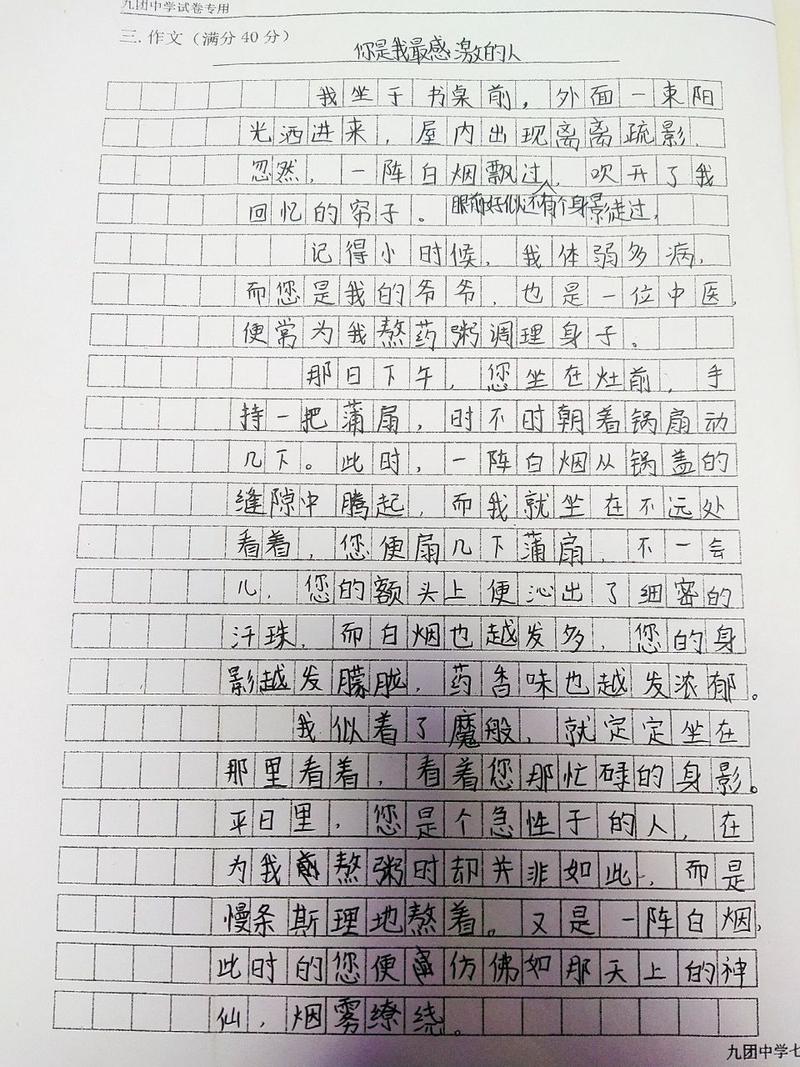 九团中学试卷专用
三. 作文（满分40分）
你是我最感激的人
我坐于书桌前，外面一束阳
光洒进来，屋内出现离离疏影，
忽然，一阵白烟飘过，吹开了我
回忆的帘子。眼前好似还有个身影走过，
记得小时候，我体弱多病，
而您是我的爷爷，也是一位中医，
便常为我熬药粥调理身子。
那日下午，您坐在灶前，手
持一把蒲扇，时不时朝着锅扇动
几下。此时，一阵白烟从锅盖的
缝隙中腾起，而我就坐在不远处
看着，您便扇几下蒲扇，不一会
儿，您的额头上便沁出了细密的
汗珠，而白烟也越发多，您的身
影越发朦胧，药香味也越发浓郁。
我似着了魔般，就定定坐在
那里看着，看着您那忙碌的身影。
平日里，您是个急性子的人，在
为我熬粥时却并非如此，而是
慢条斯理地熬着。又是一阵白烟，
此时的您便仿佛如那天上的神
仙，烟雾缭绕。
九团中学七